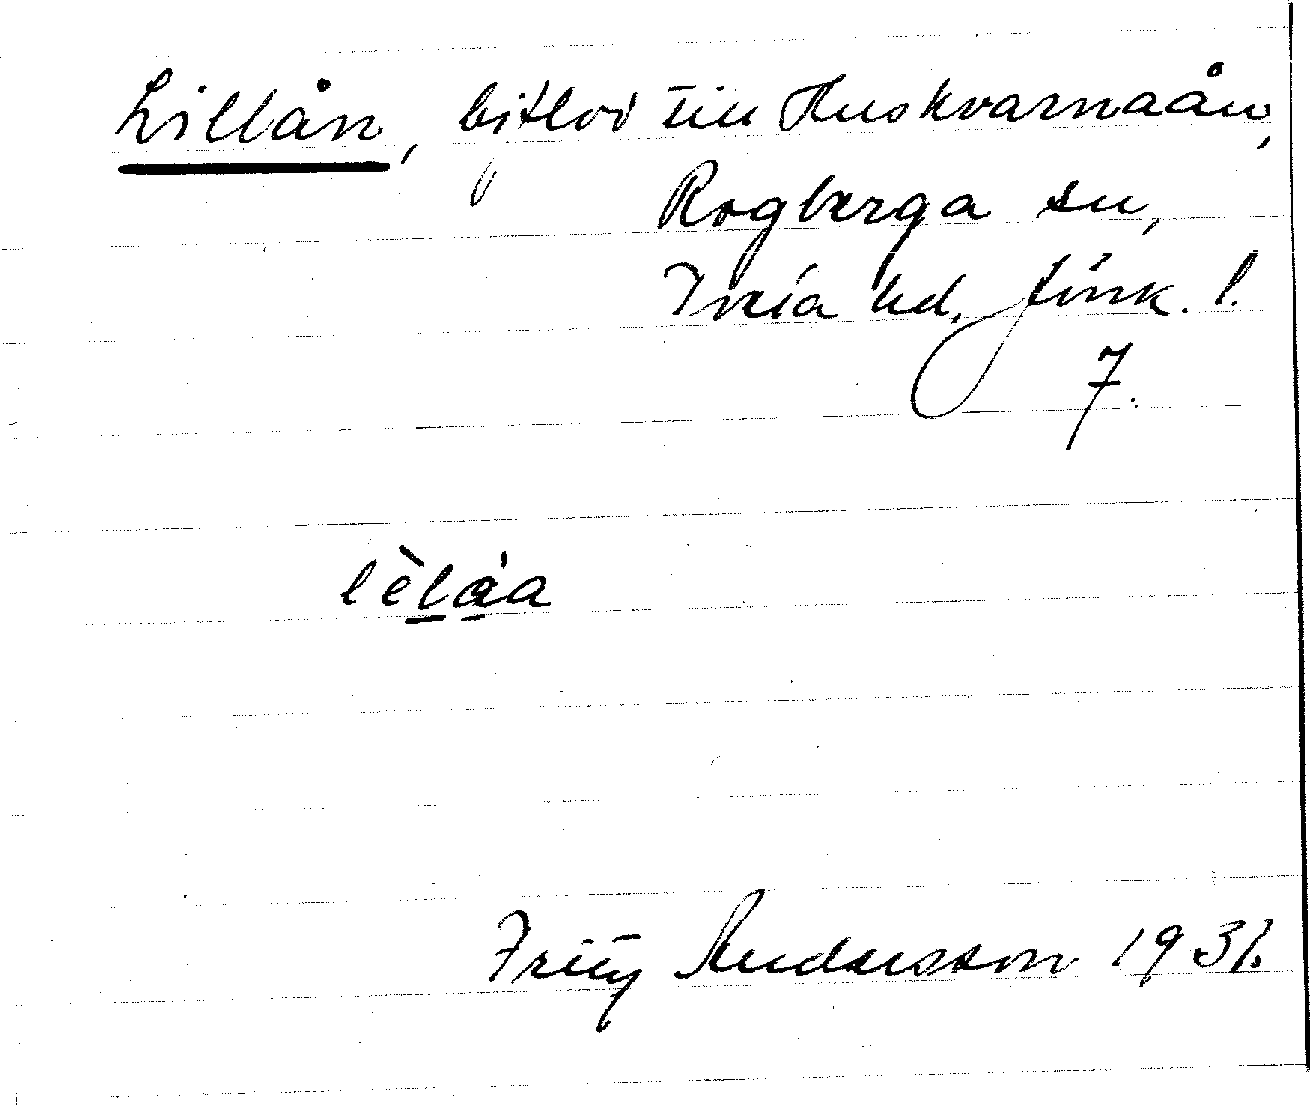 Lillån, biflod till Huskvarnaån,
Rogberga sn,
Tveta hd, Jönk. l.
7.
lèlåa
Fritz Andersson 1931.